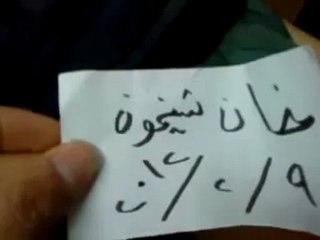 خان شيخون
٩/٢/